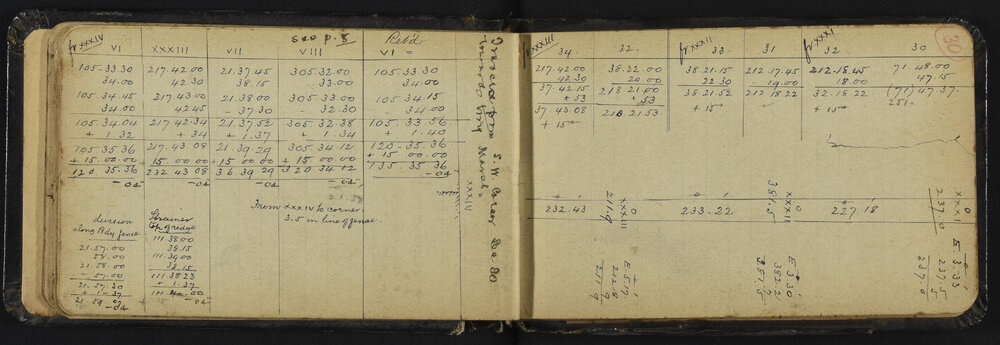 see p. 8
Ret'd
fr XXXIV
VI XXXIII VII VIII VI =
105.33.30 217.42.00 21.37.45 305.32.00 105.33.30
34.00 42.30 38.15 33.00 34.00
105.34.45 217.43.00 21.38.00 305.33.00 105.34.15
34.00 42.45 37.30 32.30 34.00
105.34.04 217.42.34 21.37.52 305.32.38 105.33.56
+ 1.32 + 34 + 1.37 + 1.34 + 1.40
105.35.36 217.43.08 21.39.29 305.34.12 120.35.36
+ 15.00.00 15.00.00 + 15.00.00 + 15.00.00 + 15.00.00
120.35.36 232.43.08 36.39.29 320.34.12 135.35.36
-04 -04 -04 -04 -04
From XXXIV to corner
3.5 in line of fence.
division
along Bdy fence
21.57.00
58.00
21.58.00
57.00
21.57.30
+ 1.37
21.59.07
-04
Strainer
111.38.00
38.15
111.39.00
38.15
111.38.23
+ 1.37
111.40.00
XXXIV
Traverse from S.W. Corner Sec 30
fr XXXIII
34. 32.
217.42.00 38.22.00
42.30 20.00
37.42.15 218.21.00
+ 53 + 53
37.43.08 218.21.53
+ 15
232.43
XXXIII
211.9
E 5.17
212.8
211.9
fr XXXII
33. 31
38.21.15 212.17.45
22.30 19.00
38.21.52 212.18.22
+ 15
233.22
XXXII
381.5
E 3.30
382.2
381.5
fr XXXI
32 30
212.18.45 71.48.00
18.00 47.15
32.18.22 (71) 47.37
+ 15 251
227.18
XXXI
237.0
E. 3.33
237.5
237.0
30